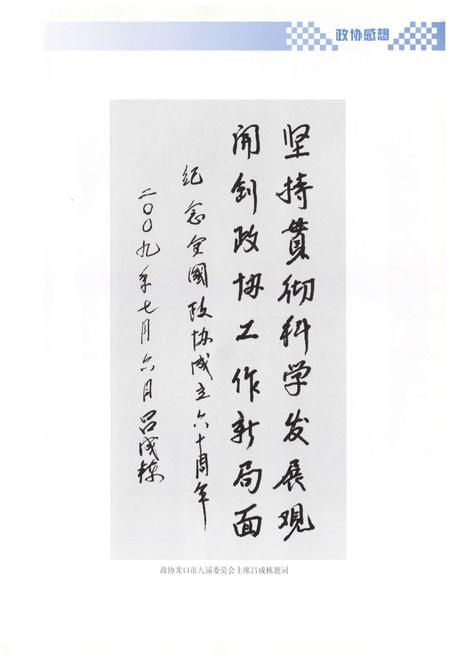 政协感想
坚持贯彻科学发展观
开创政协工作新局面
纪念全国政协成立六十周年
二〇〇九年七月六日 吕成栋
政协龙口市九届委员会主席吕成栋题词